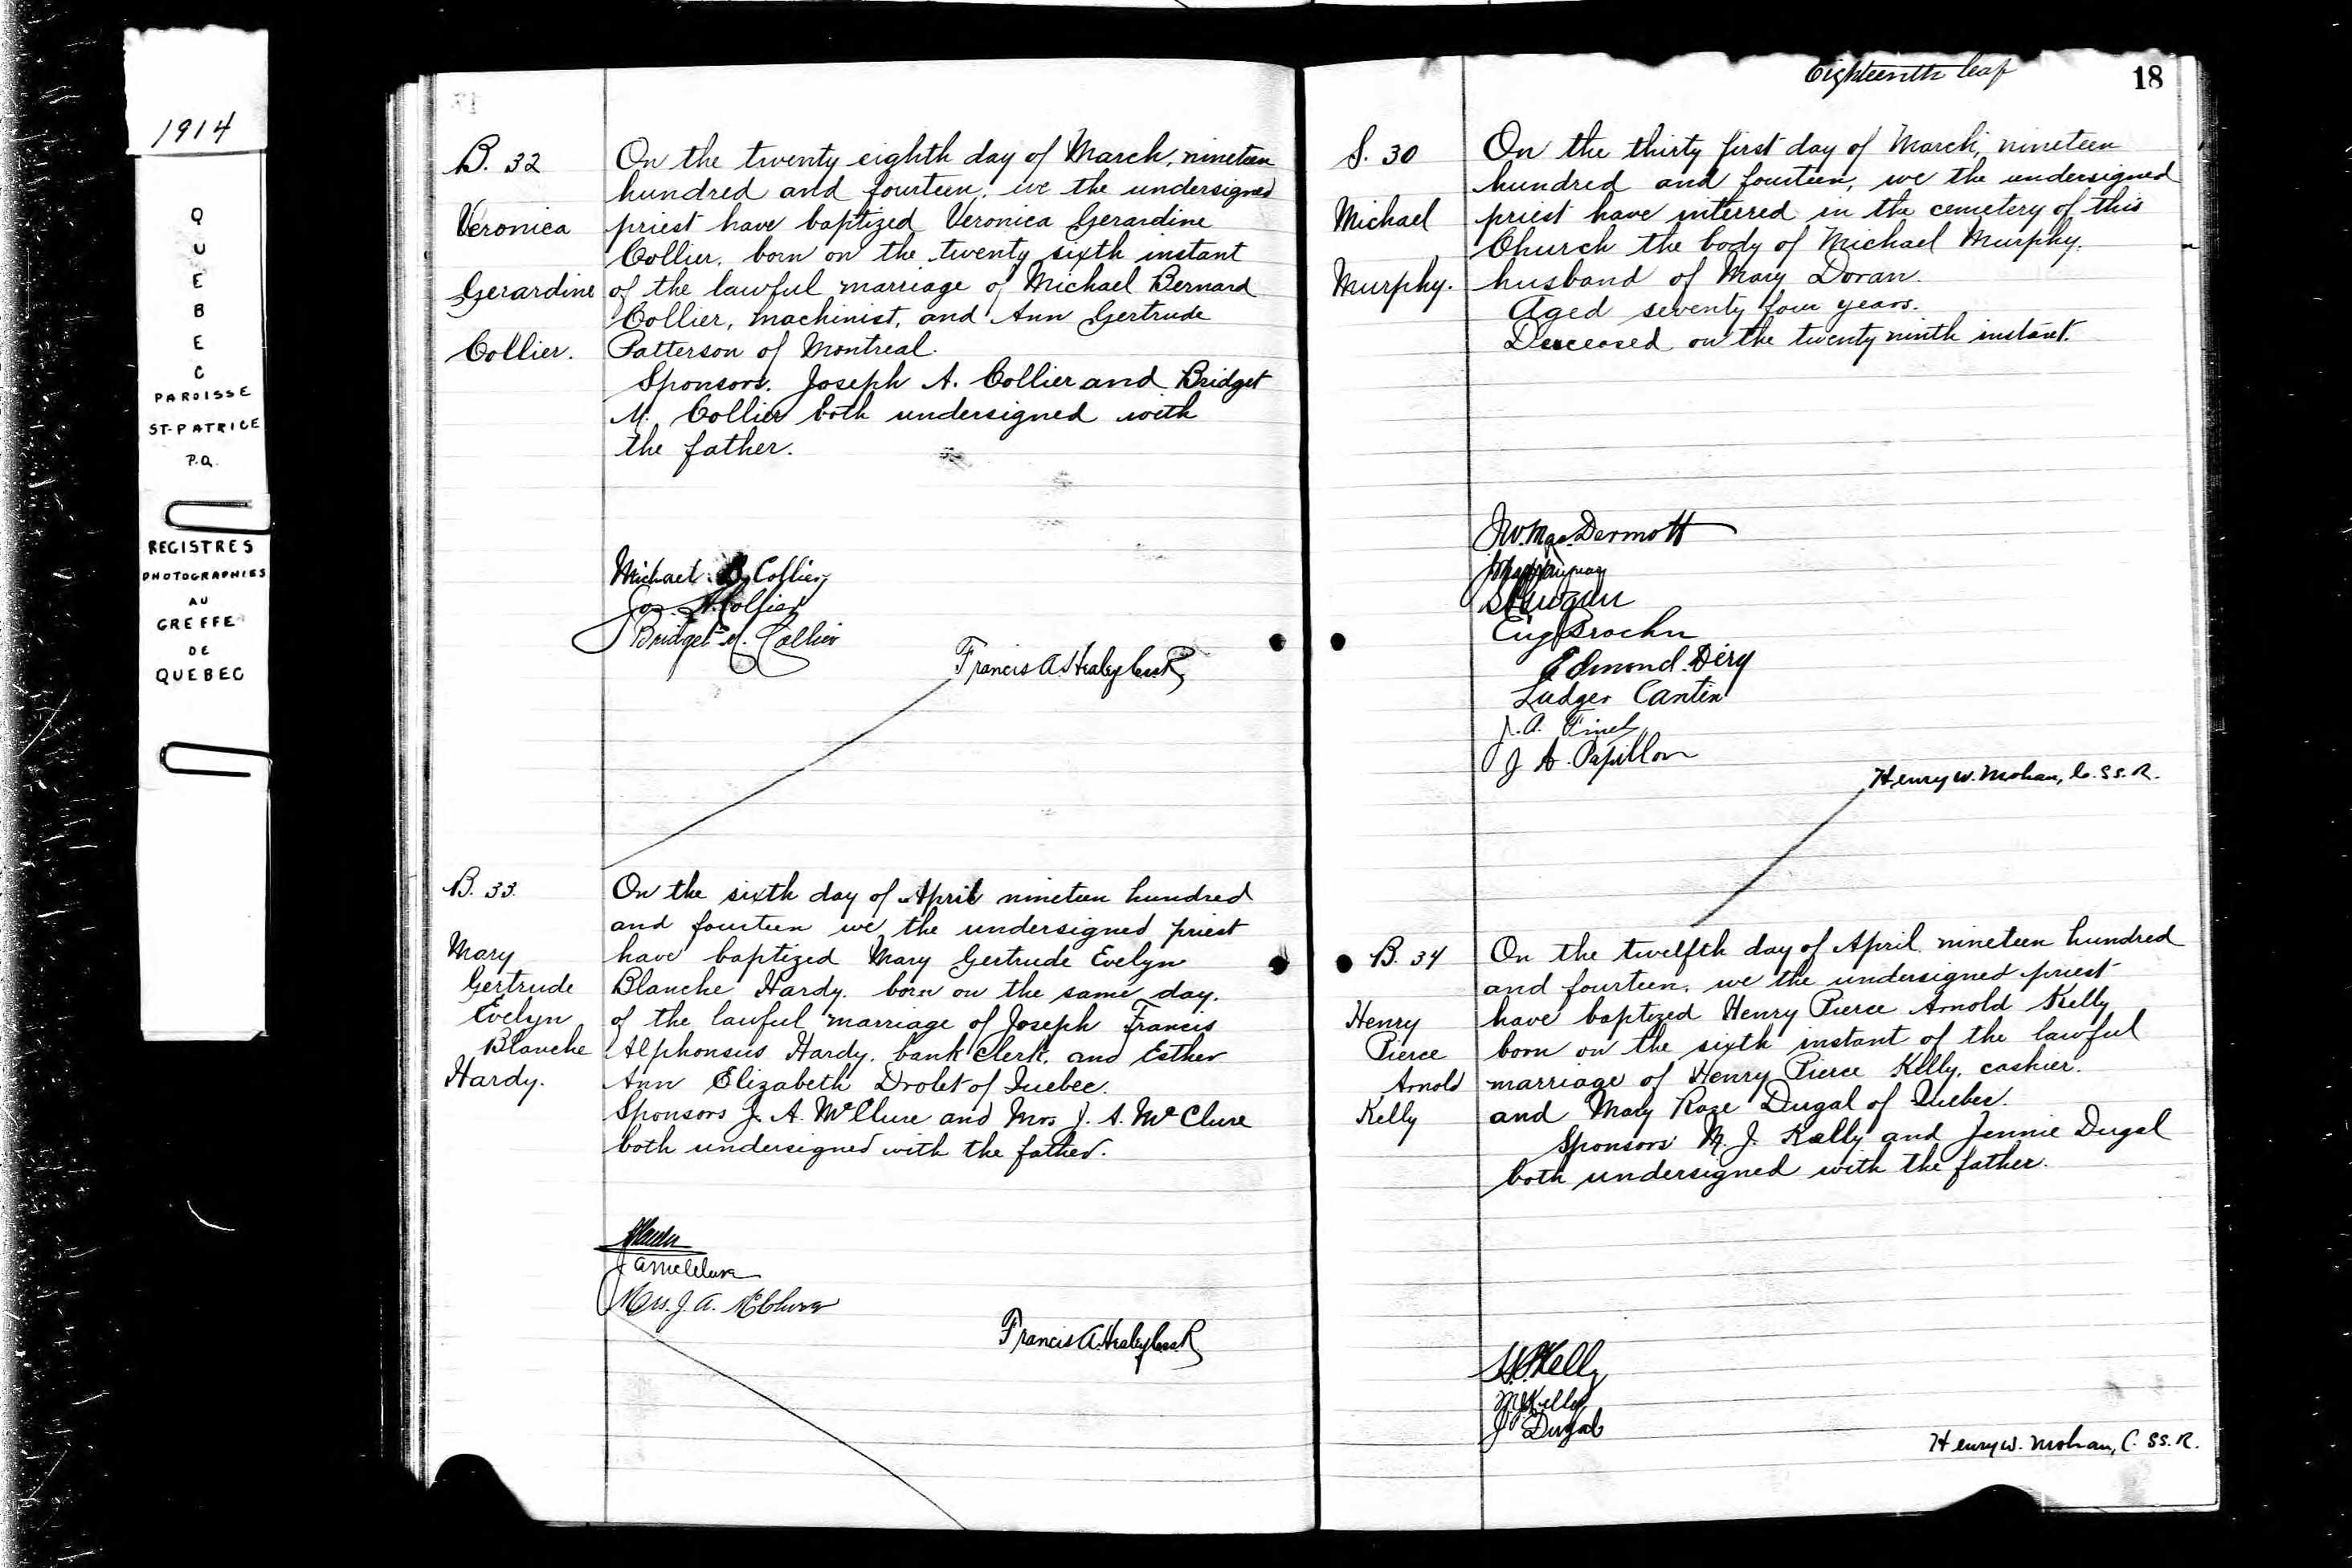 1914
QUEBEC
PAROISSE
ST-PATRICE
P.Q.
REGISTRES
PHOTOGRAPHIES
AU
GREFFE
DE
QUEBEC
B. 32
Veronica
Gerardine
Collier.
On the twenty eighth day of March, nineteen
hundred and fourteen, we the undersigned
priest have baptized Veronica Gerardine
Collier, born on the twenty sixth instant
of the lawful marriage of Michael Bernard
Collier, machinist, and Ann Gertrude
Patterson of Montreal.
Sponsors. Joseph A. Collier and Bridget
M. Collier both undersigned with
the father.
Michael B. Collier
Jos. A. Collier
Bridget M. Collier
Francis A. Healey C.SS.R.
B. 33.
Mary
Gertrude
Evelyn
Blanche
Hardy.
On the sixth day of April nineteen hundred
and fourteen we the undersigned priest
have baptized Mary Gertrude Evelyn
Blanche Hardy. born on the same day.
of the lawful marriage of Joseph Francis
Alphonsus Hardy. bank clerk, and Esther
Ann Elizabeth Drolet of Quebec.
Sponsors J. A. McClure and Mrs J. A. McClure
both undersigned with the father.
J A McClure
Mrs. J. A. McClure
Francis A. Healey C.SS.R.
Eighteenth leaf
18
S. 30
Michael
Murphy.
On the thirty first day of March, nineteen
hundred and fourteen, we the undersigned
priest have interred in the cemetery of this
Church the body of Michael Murphy.
husband of Mary Doran.
Aged seventy four years.
Deceased on the twenty ninth instant.
J.W. MacDermott
Edmond Déry
Ludger Cantin
J. A.
J A. Papillon
Henry W. Mohan, C.SS.R.
B. 34
Henry
Pierce
Arnold
Kelly
On the twelfth day of April nineteen hundred
and fourteen, we the undersigned priest
have baptized Henry Pierce Arnold Kelly
born on the sixth instant of the lawful
marriage of Henry Pierce Kelly, cashier.
and Mary Rose Dugal of Quebec.
Sponsors M. J. Kelly and Jennie Dugal
both undersigned with the father.
H.P. Kelly
M J Kelly
J Dugal
Henry W. Mohan, C.SS.R.